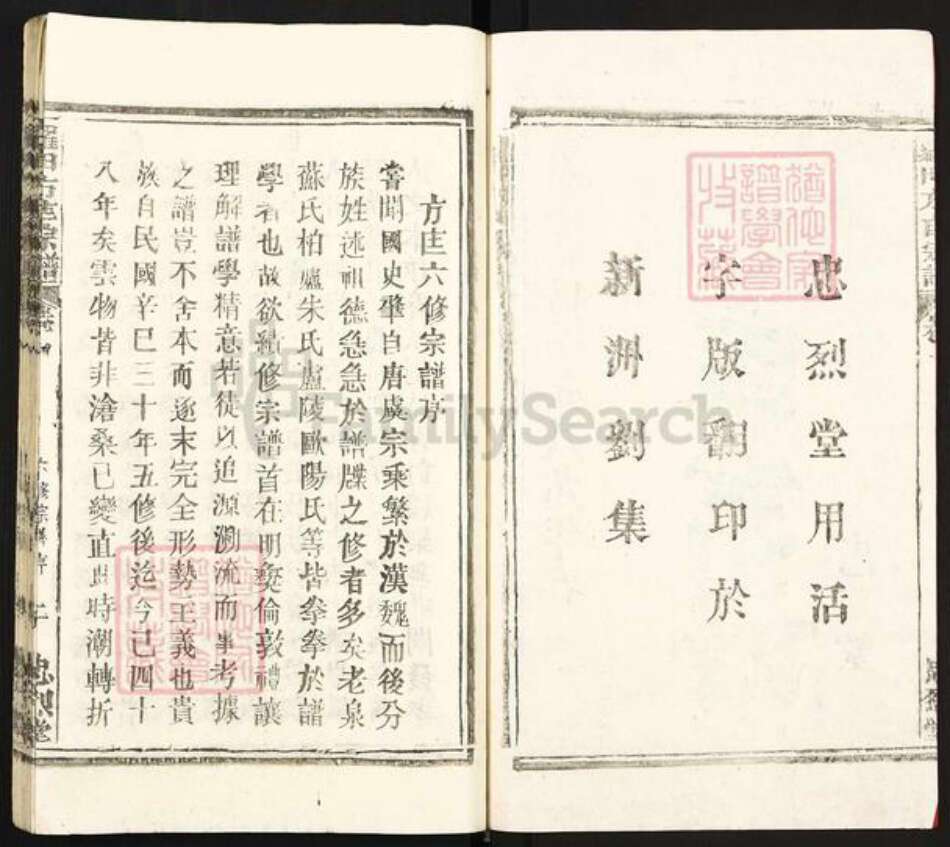 忠烈堂用活
字版翻印於
新洲劉集
方庄六修宗譜序
嘗聞國史肇自唐虞宗乘繁於漢魏而後分
族姓述祖德急急於譜牒之修者多矣老泉
蘇氏柏廬朱氏廬陵歐陽氏等皆拳拳於譜
學者也故欲續修宗譜首在明彝倫敦禮讓
理解譜學精意若徒以追源溯流而事考據
之譜豈不舍本而逐末完全形勢主義也貴
族自民國辛巳三十年五修後迄今已四十
八年矣雲物皆非滄桑已變直此時潮轉折
六修宗譜序
二
忠烈堂
FamilySearch